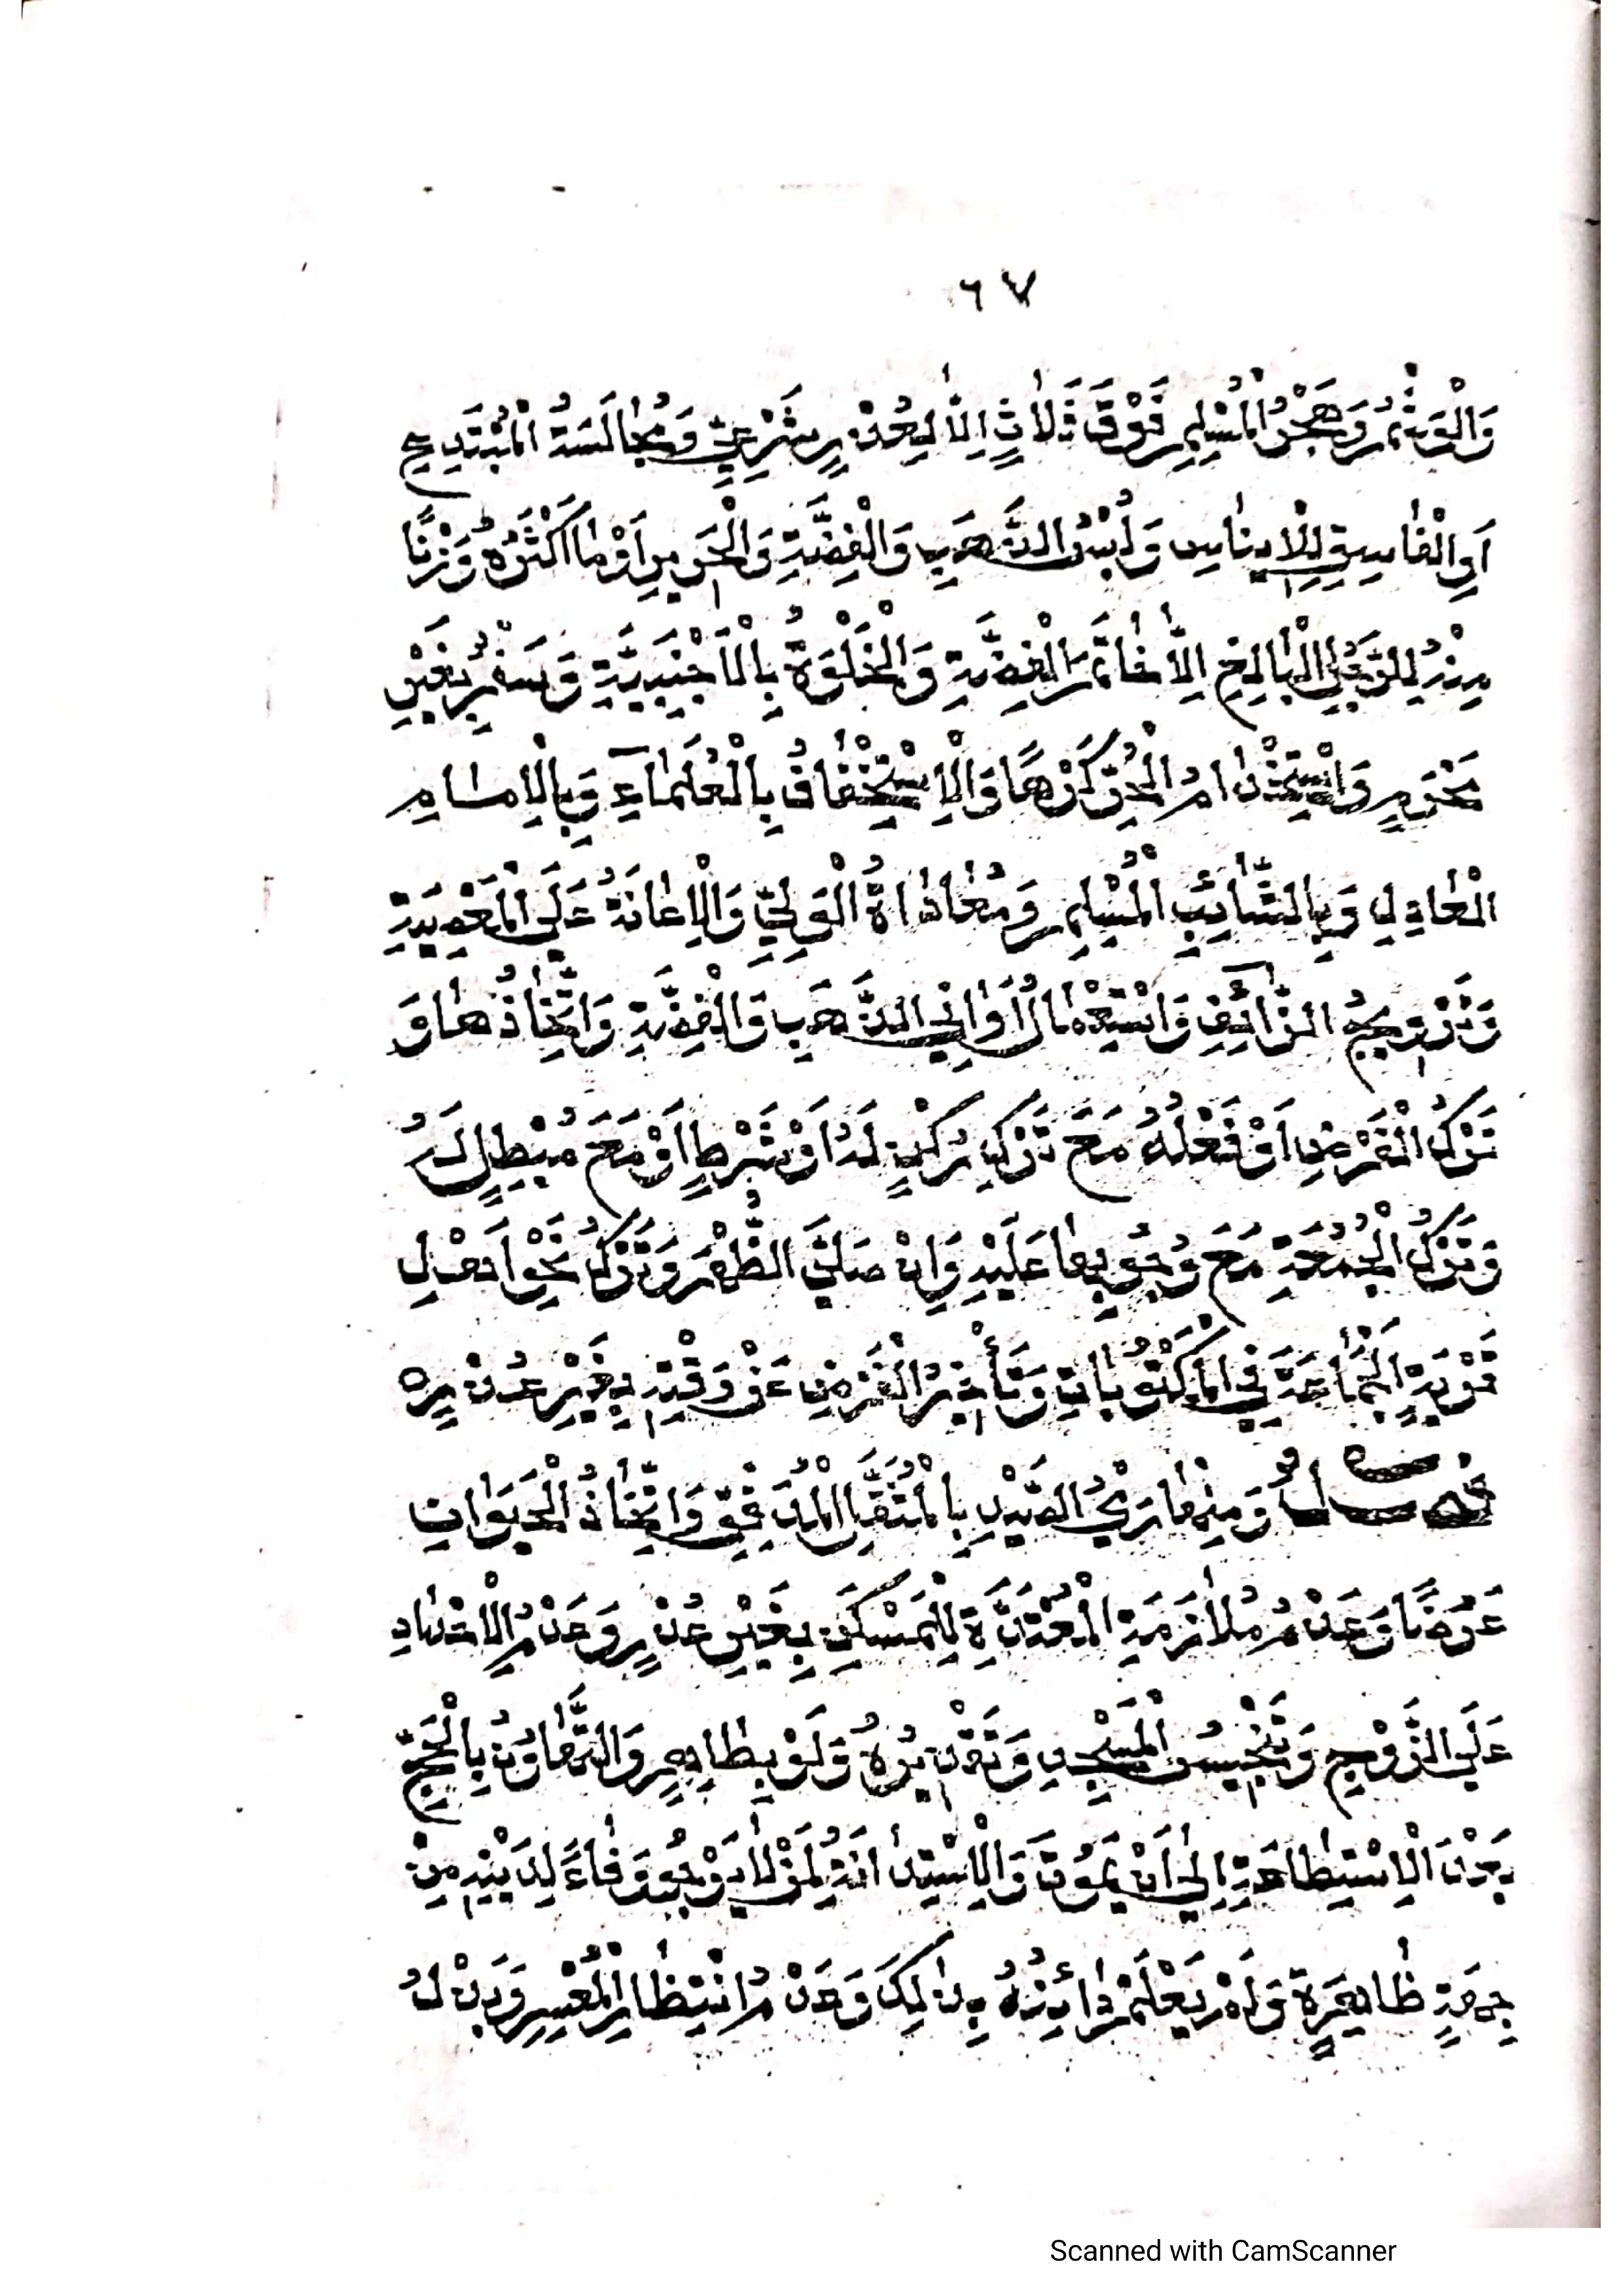 ٦٧
وَالْوَشْمُ وَهَجْرُ الْمُسْلِمِ فَوْقَ ثَلَاثٍ اِلَّا لِعُذْرٍ شَرْعِيٍّ وَمُجَالَسَةُ الْمُبْتَدِعِ
اَوِ الْفَاسِقِ لِلْاِينَاسِ وَلُبْسُ الذَّهَبِ وَالْفِضَّةِ وَالْحَرِيرِ اَوْ مَا اَكْثَرُهُ وَزْنًا
مِنْهُ لِلرَّجُلِ الْبَالِغِ اِلَّا خَاتَمَ الْفِضَّةِ وَالْخَلْوَةُ بِالْاَجْنَبِيَّةِ وَسَفَرُ بِغَيْرِ
مَحْرَمٍ وَاسْتِخْدَامُ الْحُرِّ كَرْهًا وَالْاِسْتِخْفَافُ بِالْعُلَمَآءِ وَبِالْاِمَامِ
الْعَادِلِ وَبِالشَّائِبِ الْمُسْلِمِ وَمُعَادَاةُ الْوَلِيِّ وَالْاِعَانَةُ عَلَى الْمَعْصِيَةِ
وَتَرْوِيجُ الزَّائِفِ وَاسْتِعْمَالُ اَوَانِي الذَّهَبِ وَالْفِضَّةِ وَاتِّخَاذُهَا وَ
تَرْكُ الْفَرْضِ اَوْ فَعْلُهُ مَعَ تَرْكِ رُكْنٍ لَهُ اَوْ شَرْطٍ اَوْ مَعَ مُبْطِلٍ لَهُ
وَتَرْكُ الْجُمُعَةِ مَعَ وُجُوبِهَا عَلَيْهِ وَاِنْ صَلَّى الظُّهْرَ وَتَرْكُ نَحْوِ اَهْلِ
قَرْيَةٍ الْجَمَاعَةَ فِي الْمَكْتُوبَاتِ وَتَأْخِيرُ الْفَرْضِ عَنْ وَقْتِهِ بِغَيْرِ عُذْرٍ ه
فصل وَمِنْهَا رَمْيُ الصَّيْدِ بِالْمُثَقَّلِ الْمُذَفِّفِ وَاتِّخَاذُ الْحَيَوَانِ
غَرَضًا وَعَدَمُ مُلَازَمَةِ الْمُعْتَدَّةِ لِلْمَسْكَنِ بِغَيْرِ عُذْرٍ وَعَدَمُ الْاِحْدَادِ
عَلَى الزَّوْجِ وَتَنْجِيسُ الْمَسْجِدِ وَتَقْذِيرُهُ وَلَوْ بِطَاهِرٍ وَالتَّهَاوُنُ بِالْحَجِّ
بَعْدَ الْاِسْتِطَاعَةِ اِلَى اَنْ يَمُوتَ وَالْاِسْتِدَانَةُ لِمَنْ لَا يَرْجُو وَفَاءً لِدَيْنِهِ مِنْ
جِهَةٍ ظَاهِرَةٍ وَلَمْ يَعْلَمْ دَائِنُهُ بِذَلِكَ وَعَدَمُ اِنْتِظَارِ الْمُعْسِرِ وَبَذْلُ
Scanned with CamScanner